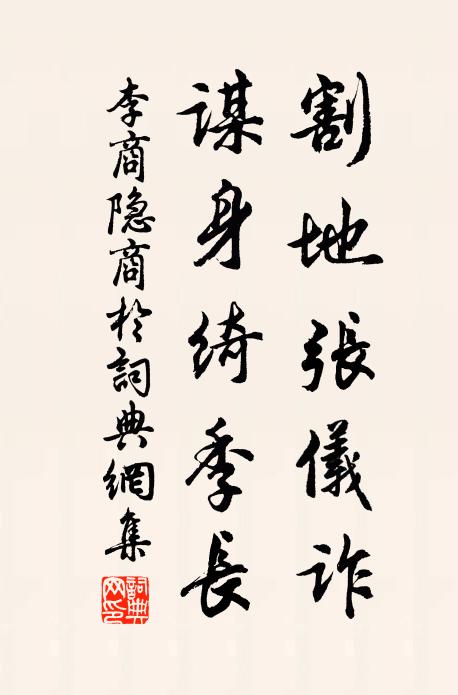 割地張儀詐
謀身綺季長
李商隐商於詞典網集
詞典网印